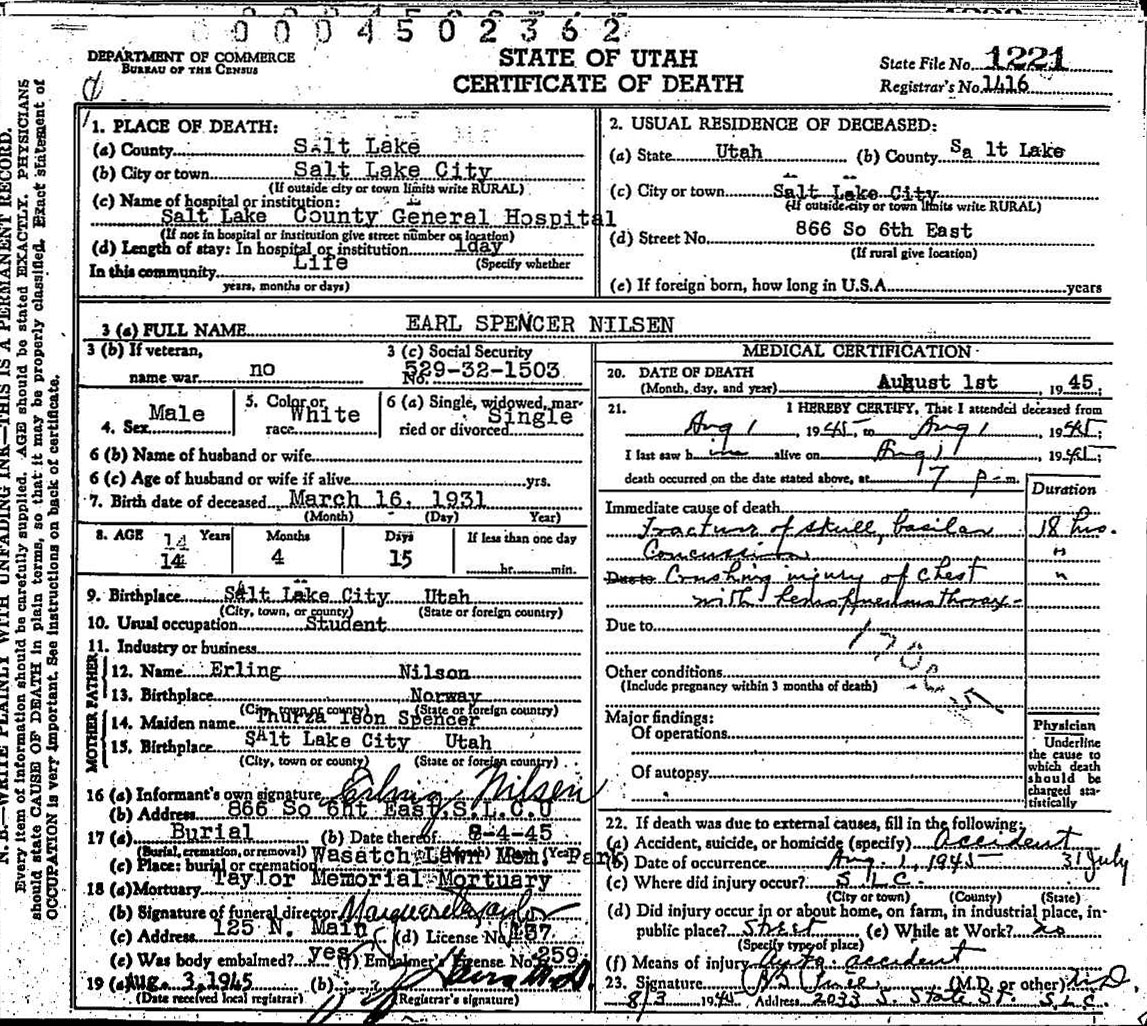 0004502362
DEPARTMENT OF COMMERCE
BUREAU OF THE CENSUS
STATE OF UTAH
CERTIFICATE OF DEATH
State File No. 1221
Registrar's No. 1416
N. B.—WRITE PLAINLY WITH UNFADING INK—THIS IS A PERMANENT RECORD.
Every item of information should be carefully supplied. AGE should be stated EXACTLY. PHYSICIANS
should state CAUSE OF DEATH in plain terms, so that it may be properly classified. Exact statement of
OCCUPATION is very important. See instructions on back of certificate.
1. PLACE OF DEATH:
(a) County Salt Lake
(b) City or town Salt Lake City
(If outside city or town limits write RURAL)
(c) Name of hospital or institution:
Salt Lake County General Hospital
(If not in hospital or institution give street number or location)
(d) Length of stay: In hospital or institution 1day
In this community Life (Specify whether
years, months or days)
2. USUAL RESIDENCE OF DECEASED:
(a) State Utah (b) County Sa lt Lake
(c) City or town Salt Lake City
(If outside city or town limits write RURAL)
(d) Street No. 866 So 6th East
(If rural give location)
(e) If foreign born, how long in U.S.A. years
3 (a) FULL NAME EARL SPENCER NILSEN
3 (b) If veteran,
name war no
3 (c) Social Security
No. 529-32-1503
4. Sex Male
5. Color or
race White
6 (a) Single, widowed, mar-
ried or divorced Single
6 (b) Name of husband or wife
6 (c) Age of husband or wife if alive yrs.
7. Birth date of deceased March 16, 1931
(Month) (Day) Year)
8. AGE Years Months Days If less than one day
14
14 4 15 hr. min.
9. Birthplace Salt Lake City Utah
(City, town, or county) (State or foreign country)
10. Usual occupation Student
11. Industry or business
FATHER
12. Name Erling Nilson
13. Birthplace Norway
(City, town or county) (State or foreign country)
MOTHER
14. Maiden name Thurza leon Spencer
15. Birthplace SAlt Lake City Utah
(City, town or county) (State or foreign country)
16 (a) Informant's own signature Erling Nilsen
(b) Address 866 So 6ht East,S.L.C.U
17 (a) Burial (b) Date thereof 8-4-45
(Burial, cremation, or removal) (Month) (Year)
(c) Place: burial or cremation Wasatch Lawn Mem. Park
18 (a) Mortuary Taylor Memorial Mortuary
(b) Signature of funeral director
(c) Address 125 N. Main (d) License No. 137
(e) Was body embalmed? yes (f) Embalmer's License No. 259
19 (a) Aug. 3,1945 (b)
(Date received local registrar) (Registrar's signature)
MEDICAL CERTIFICATION
20. DATE OF DEATH
(Month, day, and year) August 1st 1945;
21. I HEREBY CERTIFY, That I attended deceased from
Aug 1, 1945, to Aug 1, 1945;
I last saw him alive on Aug 1, 1945;
death occurred on the date stated above, at 7 p m.
Duration
Immediate cause of death
Fracture of skull, basilar 18 hrs.
Concussion "
Due to Crushing injury of chest "
with hemopneumothorax-
Due to
170C
Other conditions
(Include pregnancy within 3 months of death)
Major findings:
Of operations
Of autopsy
Physician
Underline
the cause to
which death
should be
charged sta-
tistically
22. If death was due to external causes, fill in the following:
(a) Accident, suicide, or homicide (specify) Accident
(b) Date of occurrence Aug. 1, 1945 31 July
(c) Where did injury occur? S.L.C.
(City or town) (County) (State)
(d) Did injury occur in or about home, on farm, in industrial place, in
public place? Street (e) While at Work? no
(Specify type of place)
(f) Means of injury Auto. accident
23. Signature (M.D. or other) M.D.
8/3 1945 Address 2033 S. State St. S.L.C.